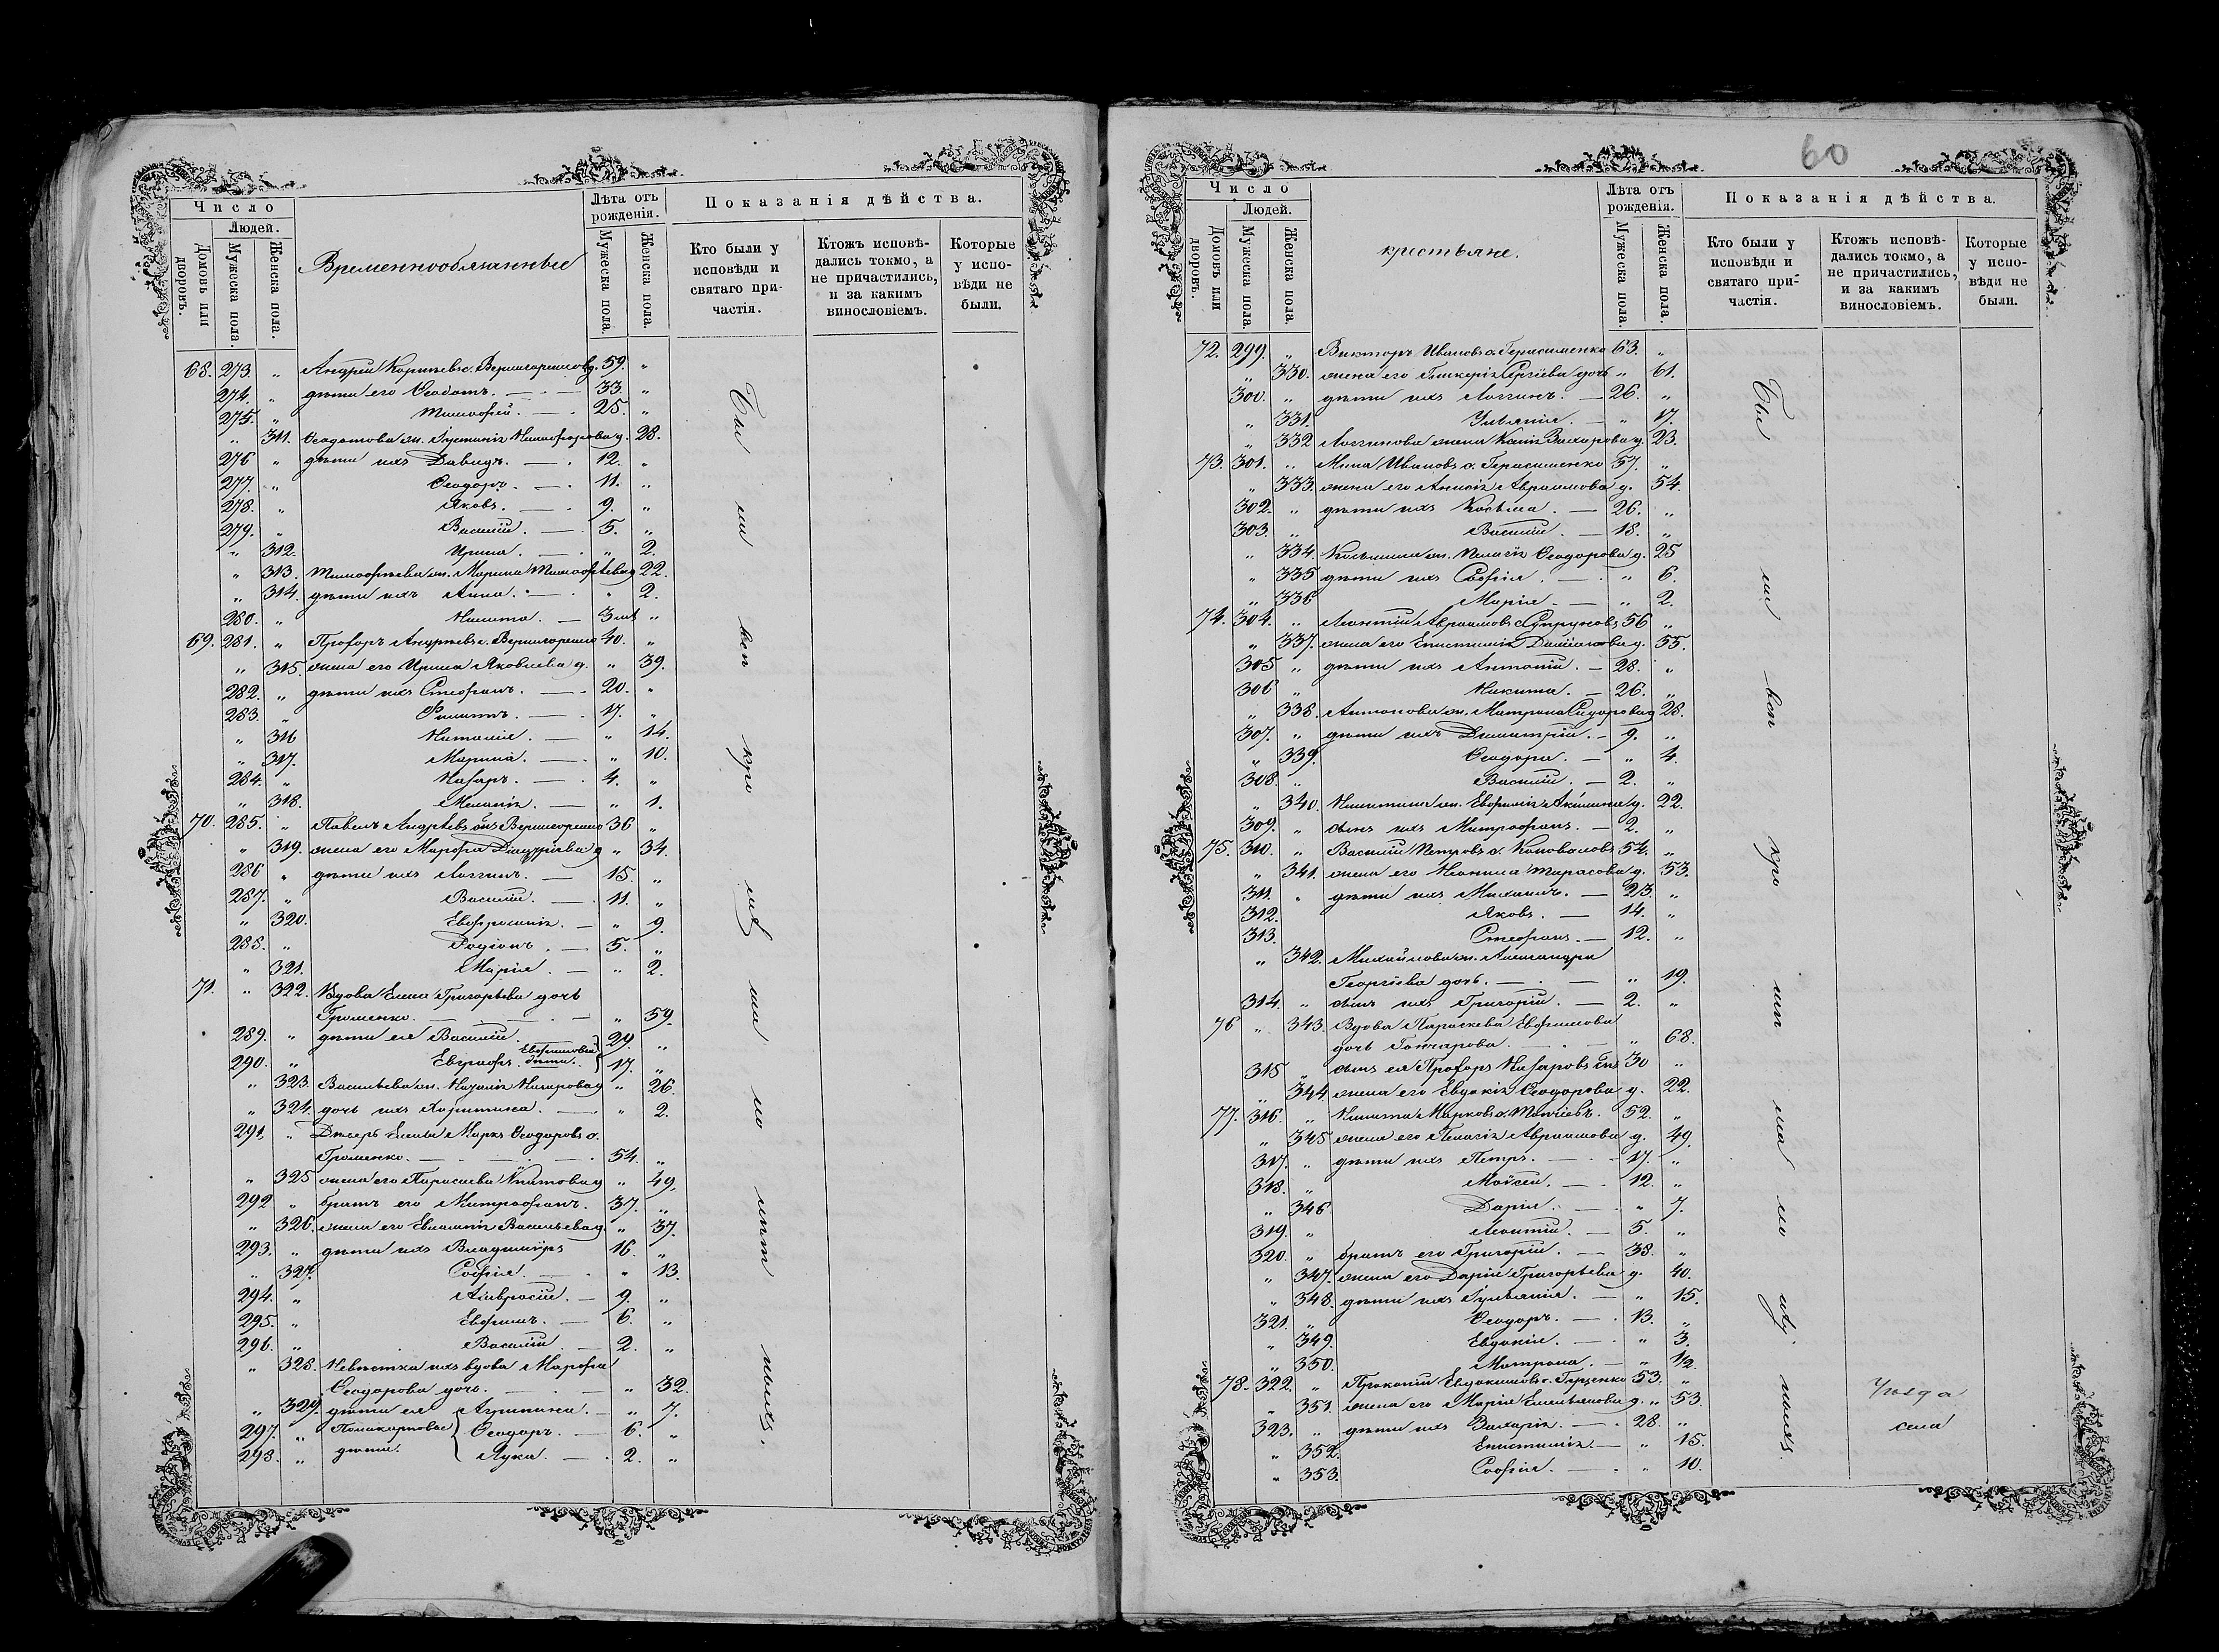 Число
Людей.
Домовъ или дворовъ.
Мужеска пола.
Женска пола.
Временнообязанные
Лѣта отъ рожденія.
Мужеска пола.
Женска пола.
Показанія дѣйства.
Кто были у исповѣди и святаго причастія.
Ктожъ исповѣдались токмо, а не причастились, и за какимъ винословіемъ.
Которые у исповѣди не были.
68. 273. „ Андрей Корнѣевъ с. 59. „
274. „ дѣти его Ѳеодотъ. — 33. „
275. „ Тимофей. — 25. „
„ 311. Ѳеодотова ж. Іустинія Никифорова д. 28.
276 „ дѣти ихъ Давидъ. — 12. „
277. „ Ѳеодоръ. — 11. „
278. „ Яковъ. — 9. „
279. „ Василій. — 5. „
„ 312. Ирина. — „ 2.
„ 313. Тимофѣева ж. Марина Тимофѣева д 22.
„ 314. дѣти ихъ Анна. — „ 2.
280. „ Никита. — „
69. 281. „ Прохоръ Андрѣевъ с. 40. „
„ 315. жена его Ирина Яковлева д. „ 39.
282. „ дѣти ихъ Стефанъ. — 20. „
283. „ Филиппъ. — 17. „
„ 316 Наталія. — „ 14.
„ 317. Марина. — „ 10.
284. „ Назаръ. — 4. „
„ 318. Меланія. — „ 1.
70. 285. „ Павелъ Андрѣевъ сынъ 36 „
„ 319. жена его Марфа д „ 34.
286 „ дѣти ихъ Логгинъ. — 15. „
287. „ Василій. — 11. „
„ 320. Евфросинія. — „ 9.
288. „ Родіонъ. — 5. „
„ 321. Марія. — „ 2.
71. „ 322. Вдова Елена Григорьева дочь
Громенко. — „ 59.
289. „ дѣти ея Василій. 29. „
290. „ Евграфъ. Евфимовы дѣти. 17. „
„ 323. Васильева ж. Наталія Назарова д „ 26.
„ 324. дочь ихъ Харитина. — „ 2.
291. „ Деверь Елены Маркъ Ѳеодоровъ с.
Громенко. — 54. „
„ 325 жена его Параскева д „ 49.
292 „ братъ его Митрофанъ. 37. „
„ 326. жена его Евлампія Васильева д. „ 37.
293. „ дѣти ихъ Владиміръ 16. „
„ 327. Софія. — „ 13.
294. „ Амвросій. — 9. „
295. „ Евфимъ. — 6. „
296. „ Василій — 2. „
„ 328. Невѣстка ихъ вдова Марфа
Ѳеодорова дочь. — „ 32.
„ 329. дѣти ея Агрипина. — „ 7.
297. „ Поликарповы Ѳеодоръ. — 6. „
298. „ дѣти. Лука. — 2. „
60
Число
Людей.
Домовъ или дворовъ.
Мужеска пола.
Женска пола.
крестьяне.
Лѣта отъ рожденія.
Мужеска пола.
Женска пола.
Показанія дѣйства.
Кто были у исповѣди и святаго причастія.
Ктожъ исповѣдались токмо, а не причастились, и за какимъ винословіемъ.
Которые у исповѣди не были.
72. 299. „ Викторъ Ивановъ с. Герасименко 63. „
„ 330. жена его Гликерія Сергіева дочь „ 61.
300. „ дѣти ихъ Логгинъ. — 26. „
„ 331. Ульянія. — „ 17.
„ 332 Логгинова жена Захарова д. 23.
73. 301. „ Мина Ивановъ с. Герасименко 57. „
„ 333. жена его Анисія Авраамова д. 54.
302. „ дѣти ихъ Косьма. — 26. „
303. „ Василій — 18. „
„ 334. Косьмина ж. Пелагія Ѳеодорова д. 25
„ 335 дѣти ихъ Софія. — „ 6.
„ 336 Марія. — „ 2.
74. 304. „ Леонтій Авраамовъ с. Супруновъ 56 „
„ 337. жена его Епистимія д. 55.
305 „ дѣти ихъ Антоній. — 28. „
306 „ Никита. — 26. „
„ 338. Антонова ж. Матрона Сидорова д 28.
307. „ дѣти ихъ Димитрій. — 9. „
„ 339. Ѳеодора. — „ 4.
308. „ Василій. — 2. „
„ 340. Никитина ж. Евфимія Акимова д. 22.
309. „ сынъ ихъ Митрофанъ. — 2. „
75. 310. „ Василій Петровъ с. Коноваловъ 54. „
„ 341. жена его Тарасова д. 53.
311. „ дѣти ихъ Михаилъ. — 23. „
312. Яковъ. — 14. „
313. Стефанъ. — 12. „
„ 342. Михайлова ж. Александра
Георгіева дочь. — „ 19.
314. „ сынъ ихъ Григорій. — 2. „
76 „ 343. Вдова Параскева Евфимова
дочь Гончарова. — „ 68.
315 „ сынъ ея Прохоръ Назаровъ сынъ 30 „
„ 344 жена его Евдокія Ѳеодорова д. 22.
77. 316. „ Никита Марковъ с. 52. „
„ 345 жена его Пелагія Авраамова д. 49.
317. „ дѣти ихъ Петръ. — 17. „
318. „ Моисей. — 12. „
„ 346 Дарія. — „ 7.
319. „ Леонтій. — 5. „
320. „ братъ его Григорій. — 38. „
„ 347. жена его Дарія Григорьева д. 40.
„ 348. дѣти ихъ Іуліанія. — „ 15.
321. „ Ѳеодоръ. — 13. „
„ 349. Евдокія. — „ 3.
„ 350. Матрона. — „ 1/2.
78. 322. „ Прокопій Евдокимовъ с. Гуценко 53. „
„ 351. жена его Марія Емельянова д. „ 53.
323. „ дѣти ихъ Захарія. — 28. „
„ 352. Епистимія. — „ 15.
„ 353. Софія. — „ 10.